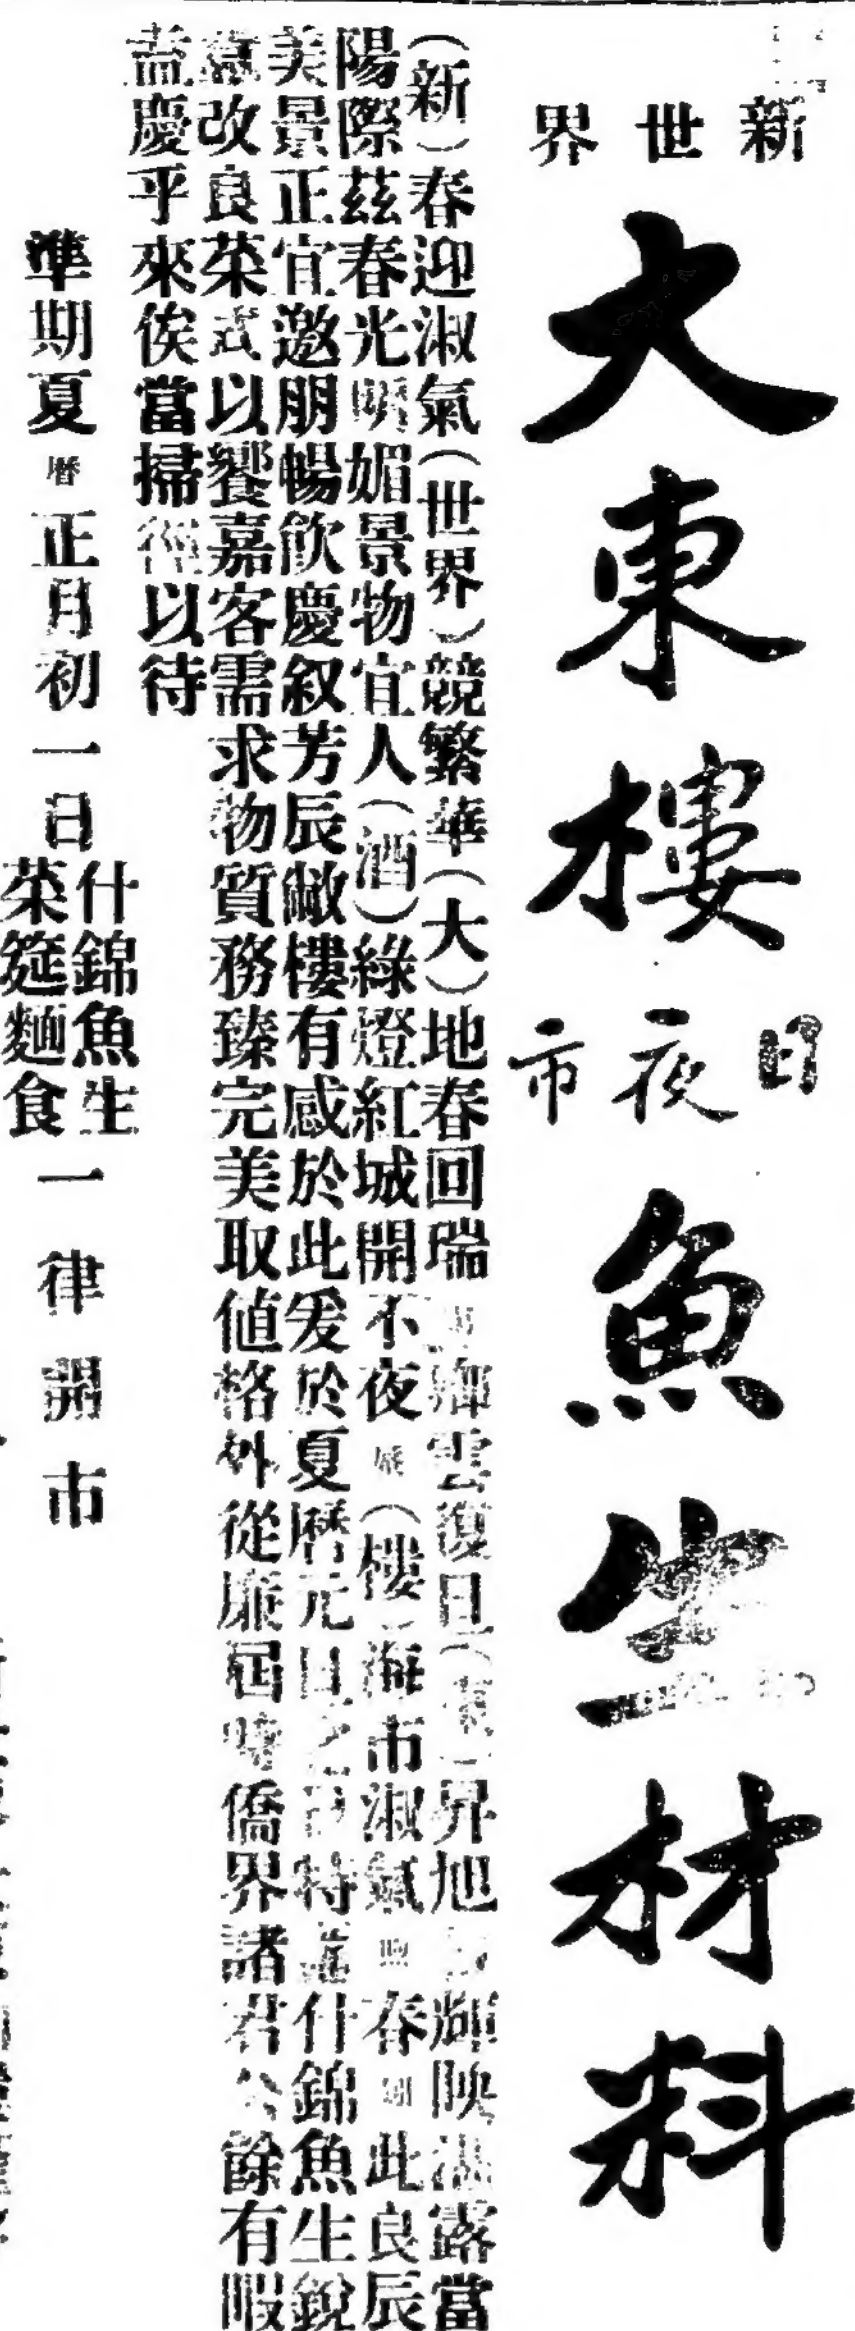 新世界
大東樓
日夜市
魚生材料
（新）春迎淑氣（世界）競繁華（大）地春回瑞 卿雲復旦（東）昇旭 輝映湛露當
陽際茲春光明媚景物宜人（酒）綠燈紅城開不夜 （樓）海市淑氣 春 此良辰
美景正宜邀朋暢飲慶叙芳辰敝樓有感於此爰於夏曆元日之 特 什錦魚生銳
意改良菜式以饗嘉客需求物質務臻完美取值格外從廉屆時僑界諸君公餘有暇
盍慶乎來俟當掃徑以待
準期夏曆正月初一日
什錦魚生
菜筵麵食
一律開市